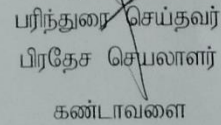 பரிந்துரை செய்தவர்
பிரதேச செயலாளர்
கண்டாவளை